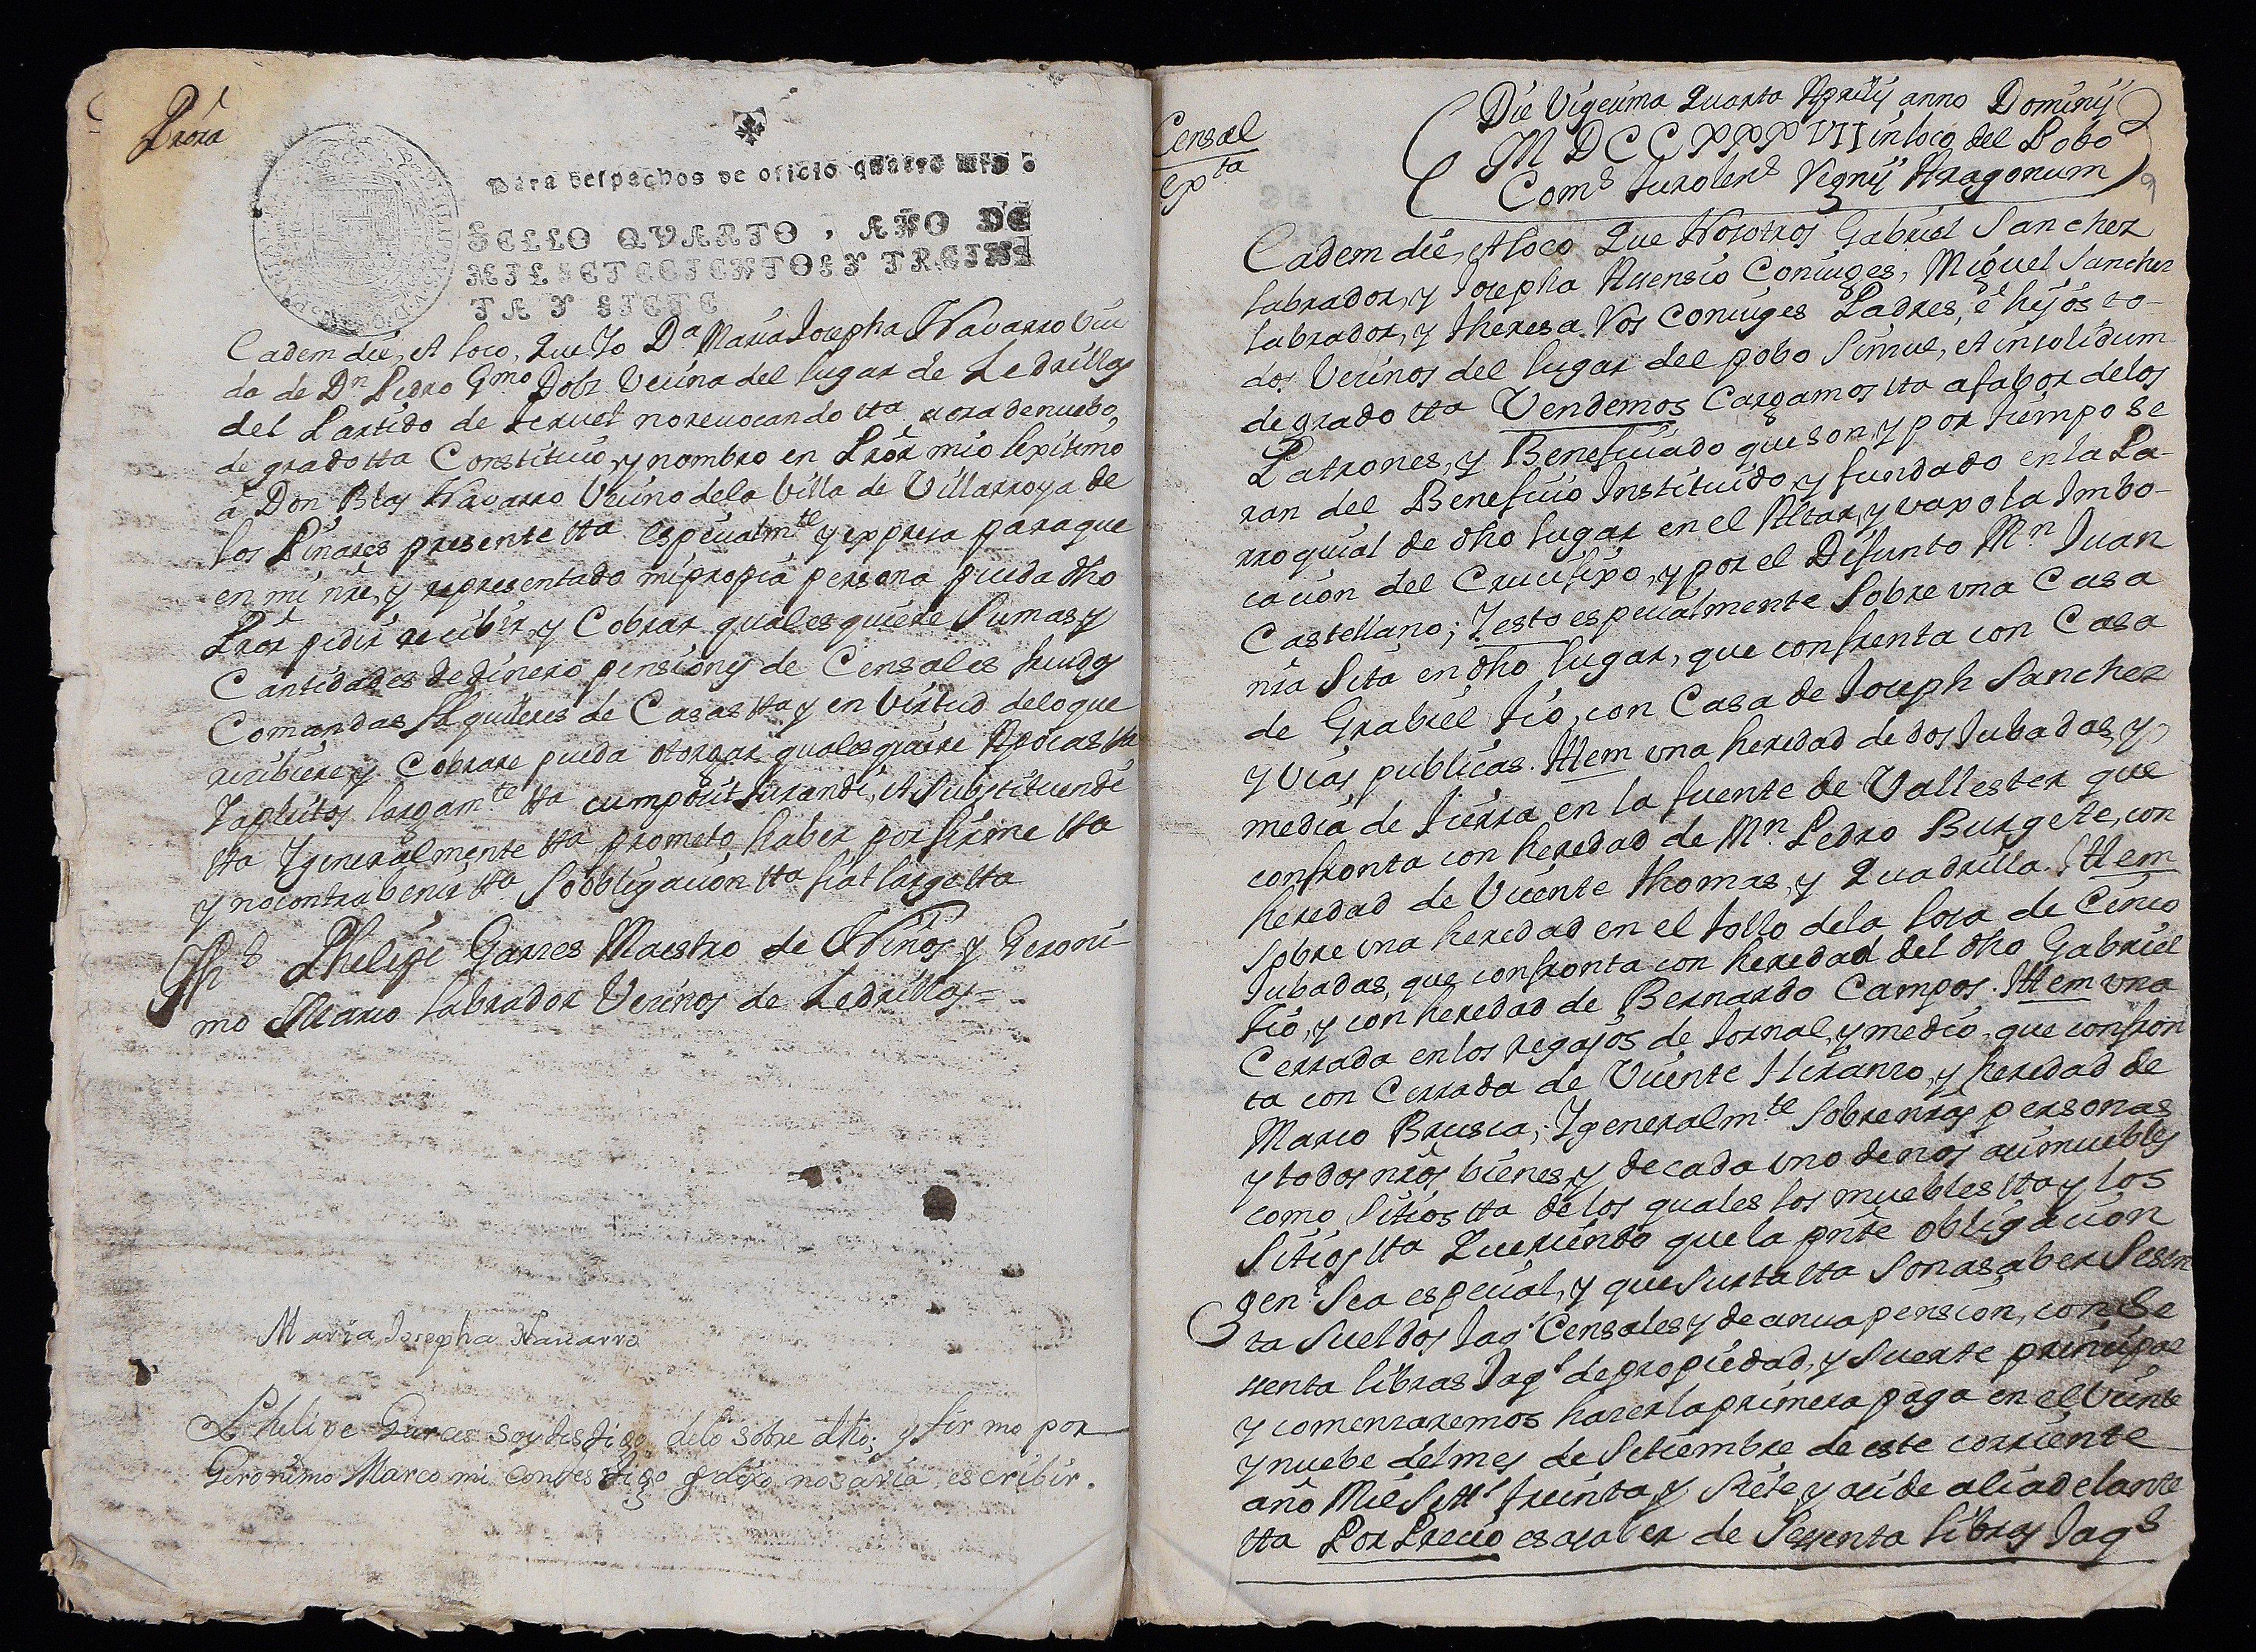 Prõra
Para despachos de oficio quatro mrs.
SELLO QVARTO, AÑO DE
MIL SETECIENTOS Y TREIN
TA Y SIETE
Eadem die, et loco, Que Yo Dª Maria Josepha Navarro Viu
da de Dn Pedro Gmo Dolz Vecina del lugar de Cedrillas
del Partido de Teruel no revocando tta aora de nuebo,
de grado tta Constituio, y nombro en Prõr mio lexitimo
â Don Blas Navarro Vecino dela Villa de Villarroya de
los Pinares presente tta especialmte y expresa para que
en mi nre, y representado mi propia persona pueda dho
Prõr pedir recibir, y Cobrar quales quiere Sumas, y
Cantidades de dinero pensiones de Censales treudos
Comandas Alquileres de Casas tta y en Virtud delo que
recibiere, y Cobrare pueda otorgar quales quiere Apocas tta
Y apleitos largamte tta cumpõtt Jurandi, et Substituendi
tta Y generalmente tta prometo haber por firme tta
y no contrabenir tta So obligacion tta fiat large tta
Ths Phelipe Garzes Maestro de Niños, y Geroni-
mo Marco labrador Vecinos de Cedrillas=
Maria Josepha Navarro
Phelipe Garces soy testigo delo sobre dho; y firmo por
Geronimo Marco mi contestigo q dixo no savia escribir.
Censal
exta
Die Vigesima Quarta Aprilij anno Dominij
M DCC XXXVII in loco del Pobo
Coms Turolens Regnij Aragonum
9
Eadem die, et loco Que Nosotros Gabriel Sanchez
labrador, y Josepha Asensio Coniuges, Miguel Sanchez
labrador, y Theresa Vos Coniuges Padres, ê hijos to-
dos Vecinos del lugar del pobo Simul, et insolidum
de grado tta Vendemos Cargamos tta a fabor delos
Patrones, y Beneficiado que son, y por tiempo se
ran del Beneficio Instituido, y fundado en la Pa-
rroquial de dho lugar en el Altar, y vaxo la Imbo-
cacion del Crucifixo, y por el Difunto Mn Juan
Castellano; Y esto especialmente Sobre una Casa
nrã Sita en dho lugar, que confrenta con Casa
de Grabiel Tio, con Casa de Joseph Sanchez
y vias publicas. Ittem una heredad de dos Jubadas, y
media de tierra en la fuente de Vallester que
confronta con heredad de Mn. Pedro Burgete, con
heredad de Vicente Thomas, y Quadrilla. Ittem
Sobre una heredad en el tollo dela loca de Cinco
Jubadas, que confronta con heredad del dho Gabriel
Tio, y con heredad de Bernardo Campos. Ittem una
Cerrada en los regajos de Jornal, y medio, que confron
ta con Cerrada de Vicente Iliranzo, y heredad de
Marco Brusca; Y generalmte Sobre nrãs personas
y todos nrõs bienes, y de cada uno de nos asi muebles
como Sitios tta de los quales los muebles tta y los
Sitios tta Queriendo que la pnte obligacion
genl Sea especial, y que Surta tta Son asaber Sesen
ta Sueldos Jaqs Censales, y de anua pension, con Se
senta libras Jaqs de propiedad, y Suerte principal
y comenzaremos hazer la primera paga en el Veinte
y nuebe del mes de Setiembre de este corriente
año Mil Setts treinta, y Siete, y asi de alli adelante
tta Por Precio es asaber de Sesenta libras Jaqs